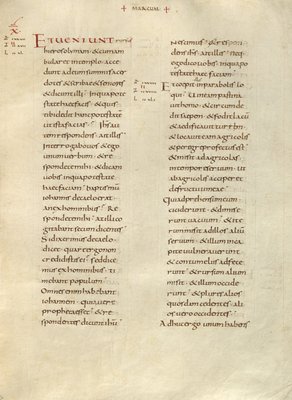 + MARCUM +
Et ueniunt rursus
hierosolymam & cum am
bularet in templo acce
dunt ad eum summi sacer
dotes & scribae & seniores
& dicunt illi In qua pote
state haec facis & quis
tibi dedit hanc potestate
ut ista facias Ihs au
tem respondens ait illis
Interrogabo uos & ego
unum uerbum & re
spondete mihi & dicam
uobis in qua potestate
haec faciam baptismu
iohannis de caelo erat
an ex hominibus Re
spondete mihi At illi co
gitabant secum dicentes
Si dixerimus de caelo
dicet quare ergo non
credidistis ei sed dice
mus ex hominibus ti
mebant populum
Omnes enim habebant
iohannem quia uere
propheta esset & re
spondentes dicunt ihu
Nescimus & respon
dens ihs ait illis neq;
ego dico uobis in qua po
testate haec faciam
Et coepit in parabolis lo
qui Uineam pastina
uit homo & circumde
dit sepem & fodit lacu
& aedificauit turrem &
locauit eam agricolis
& peregre profectus est
& misit ad agricolas
in tempore seruum ut
ab agricolis acciperet
de fructu uineae
Qui adprehensum eum
ceciderunt & dimise
runt uacuum & ite
rum misit ad illos aliu
seruum & illum in ca
pite uulnerauerunt
& contumeliis adfece
runt & rursum alium
misit & illum occide
runt & plures alios
quosdam caedentes ali
os uero occidentes
Adhuc ergo unum habens